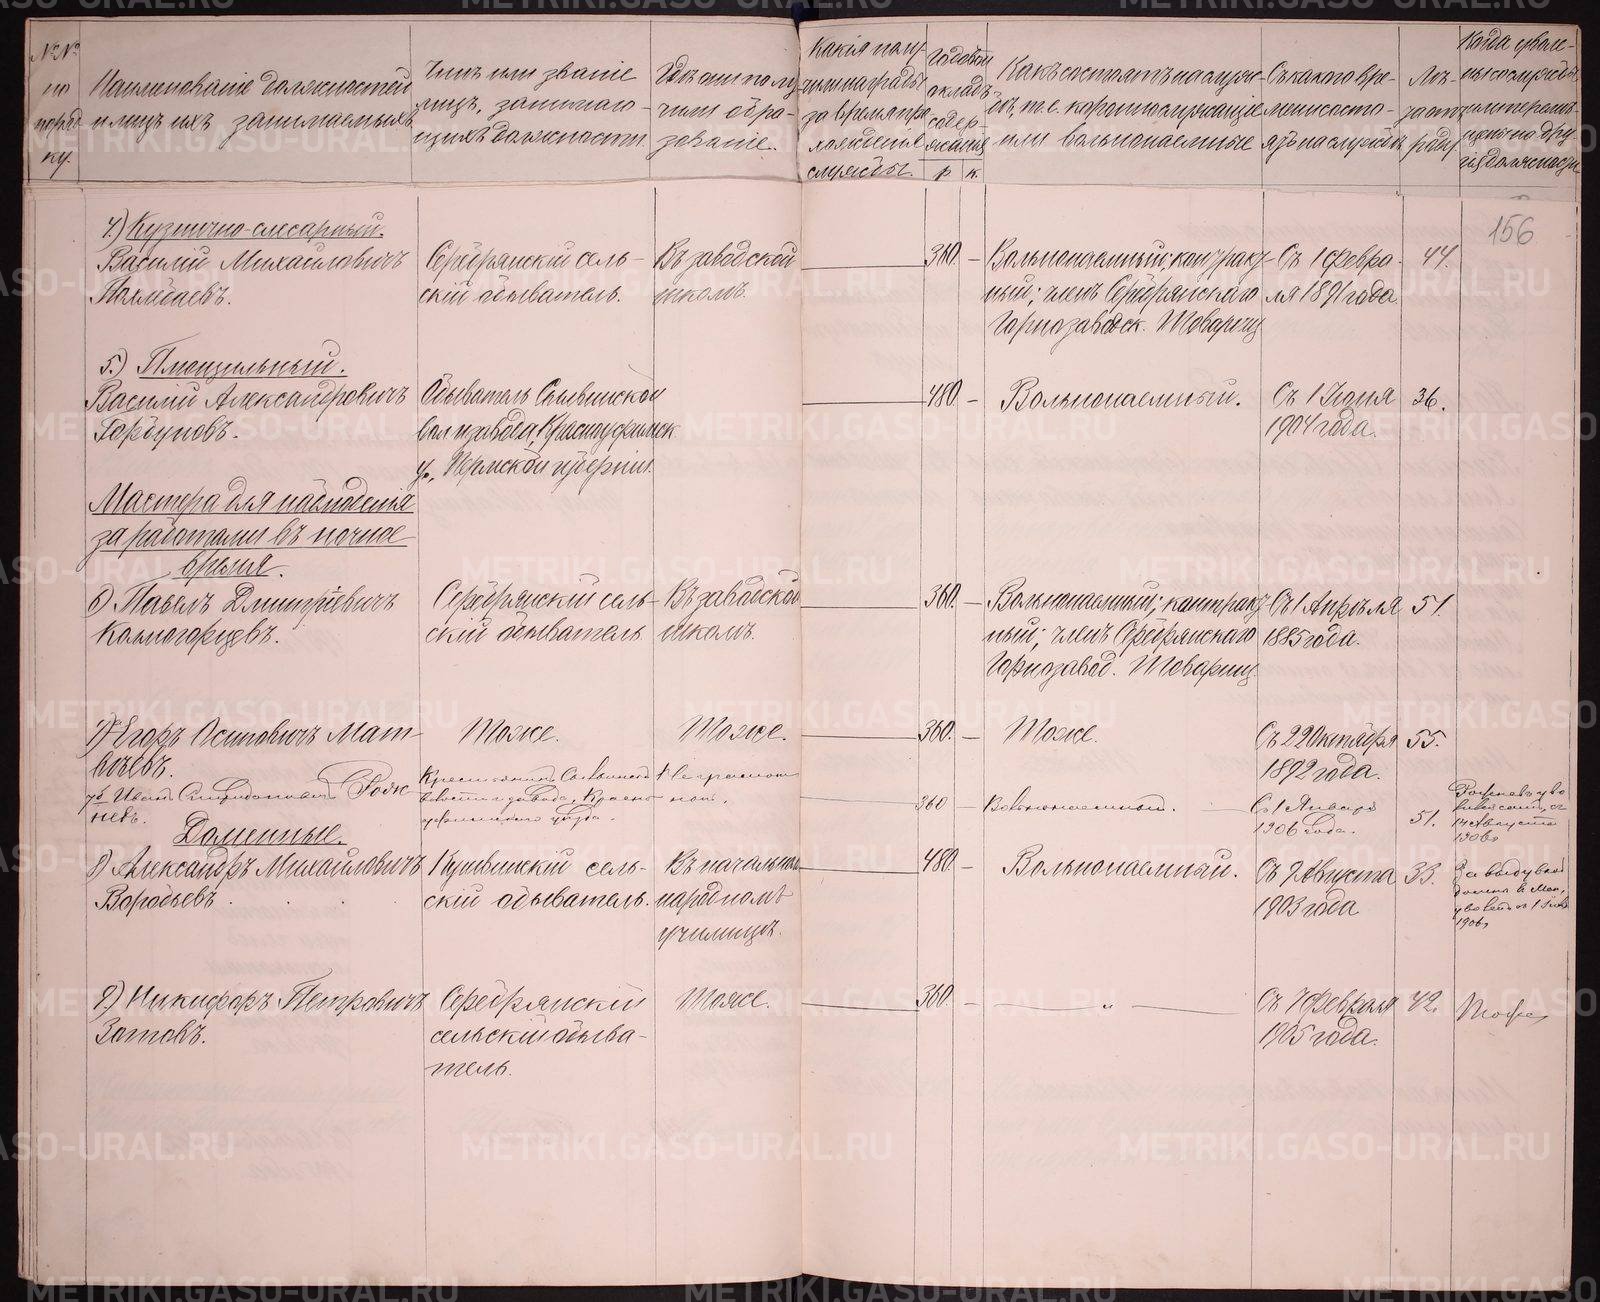 №№
по
поряд
ку.
Наименованіе должностей
и лицъ ихъ занимаемыхъ
Чинъ или званіе
лицъ, занимаю-
щихъ должности.
Гдѣ они полу
чили обра-
зованіе.
Какія полу-
чили награды
за время про
хожденія
службы.
Годовой
окладъ
содер
жанія
р к.
Какъ состоятъ на служ-
бѣ, т.е. коронно служащіе
или вольнонаемные
Съ какого вре-
мени состо-
ятъ на службѣ
Лѣ-
та отъ
роду
Когда уволе-
ны со службы
или перемѣ-
щены на дру
гія должности
156
4) Кузнично-слесарный.
Василій Михайловичъ
Серебрянскій сель-
скій обыватель.
Въ заводской
школѣ.
310. –
Вольнонаемный, контракт-
ный; членъ Серебрянскаго
Горнозаводск. Товарищ
Съ 1 февра-
ля 1891 года.
44.
5.) Плющильный.
Василій Александровичъ
Горбуновъ.
Обыватель Сылвинской
вол. и завода, Красноуфимск
у., Пермской губерніи.
480. –
Вольнонаемный.
Съ 1 Іюня
1904 года.
36.
Мастера для наблюденія
за работами въ ночное
время.
6) Павелъ Дмитріевичъ
Колмогорцевъ.
Серебрянскій сель-
скій обыватель
Въ заводской
школѣ.
360. –
Вольнонаемный; контракт
ный; членъ Серебрянскаго
Горнозавод. Товарищ.
Съ 1 Апрѣля
1885 года.
51.
7) Егоръ Осиповичъ Мат-
вѣевъ.
Тоже.
Тоже.
360. –
Тоже.
Съ 22 Октября
1892 года.
55.
7б Иванъ Спиридоновичъ Рож
невъ.
Крестьянинъ Сылвинской
волости и завода, Красно
уфимскаго уѣзда.
Неграмот
ный.
360 –
Вольнонаемный.
Съ 1 Января
1906 года.
51.
Рожневъ уво
14 Августа
1906 г
Доменные.
8) Александръ Михайловичъ
Воробьевъ
Кушвинскій сель-
скій обыватель.
Въ начальномъ
народномъ
училищѣ.
480. –
Вольнонаемный.
Съ 9 Августа
1903 года
33.
За выдувкой
домны
1906 г
9.) Никифоръ Петровичъ
Зотовъ.
Серебрянскій
сельскій обыва-
тель.
Тоже.
360. –
"
Съ 7 февраля
1905 года.
42.
Тоже
METRIKI.GASO-URAL.RU